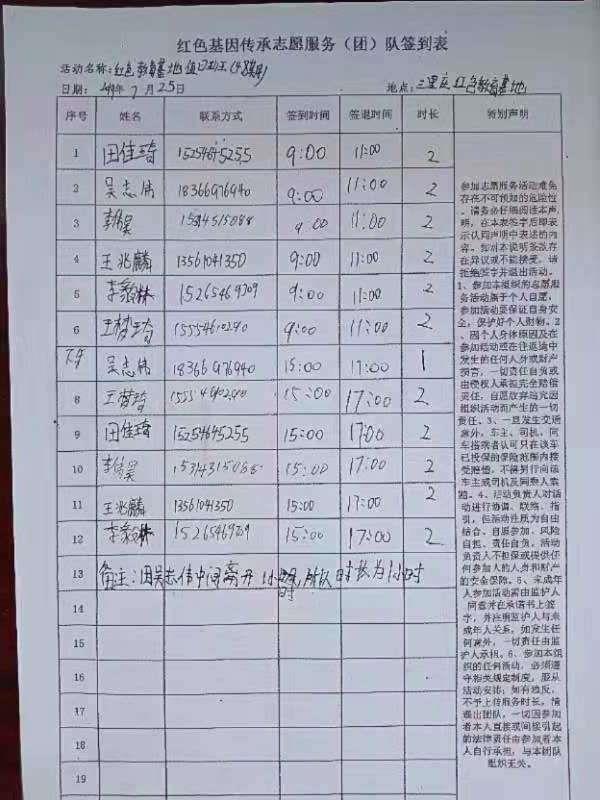 红色基因传承志愿服务（团）队签到表
活动名称：红色教育基地值日班王
日期： 年 7 月 25日 地点：三里庄红色教育基地
序号 姓名 联系方式 签到时间 签退时间 时长 特别声明
1 田佳琦 15254645255 9:00 11:00 2
2 吴志伟 18366976940 9:00 11:00 2
3 9:00 11:00 2
4 王兆麟 13561041350 9:00 11:00 2
5 李毅林 15265469709 9:00 11:00 2
6 王梦琦 15554610290 9:00 11:00 2
下午 吴志伟 18366976940 15:00 17:00 1
8 王梦琦 15:00 17:00 2
9 田佳琦 15254645255 15:00 17:00 2
10 15:00 17:00 2
11 王兆麟 13561041350 15:00 17:00 2
12 李毅林 15:00 17:00 2
13 备注：因吴志伟中间离开1小时，所以时长为1小时
14
15
16
17
18
19
参加志愿服务活动难免
存在不可预知的危险性
，请务必仔细阅读本声
明，在本表签字后即表
示认同声明中表述的内
容。如对本说明条款存
在异议或不能接受，请
拒绝签字并退出活动。
1、参加本组织的志愿服
务活动属于个人自愿，
参加活动要保证自身安
全，保护好个人财物。2
、因个人身体原因及在
参加活动或在往返途中
发生的任何人身或财产
损害，一切责任自负或
由侵权人承担完全赔偿
责任，自愿放弃追究因
组织活动而产生的一切
责任。3、一旦发生交通
意外，车主、司机、同
车搭乘者认可只在该车
已投保的保险范围内接
受赔偿，不得另行向该
车主或司机及同乘人索
赔。4、活动负责人对活
动进行协调、联络、指
引，但活动性质为自由
结合、自愿参加、风险
自担、责任自负，活动
负责人不担保或提供任
何参加人的人身和财产
的安全保障。5、未成年
人参加活动需由监护人
同意并在承诺书上签
字，并注明监护人与未
成年人关系，如发生任
何意外，一切责任由监
护人承担。6、参加本组
织的任何活动，必须遵
守相关规定制度，服从
活动安排，如有违反，
不予上传服务时长，情
退出团队，一切因参加
者本人直接或间接引起
的法律责任由参加者本
人自行承担，与本团队
组织无关。